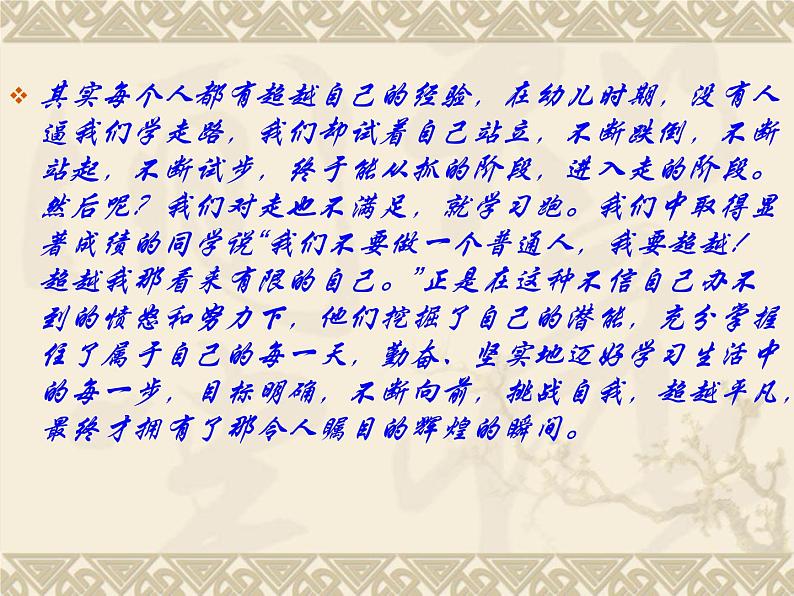 其实每个人都有超越自己的经验，在幼儿时期，没有人
逼我们学走路，我们却试着自己站立，不断跌倒，不断
站起，不断试步，终于能从抓的阶段，进入走的阶段。
然后呢？我们对走也不满足，就学习跑。我们中取得显
著成绩的同学说“我们不要做一个普通人，我要超越！
超越我那看来有限的自己。”正是在这种不信自己办不
到的愤怒和努力下，他们挖掘了自己的潜能，充分掌握
住了属于自己的每一天，勤奋、坚实地迈好学习生活中
的每一步，目标明确，不断向前，挑战自我，超越平凡，
最终才拥有了那令人瞩目的辉煌的瞬间。